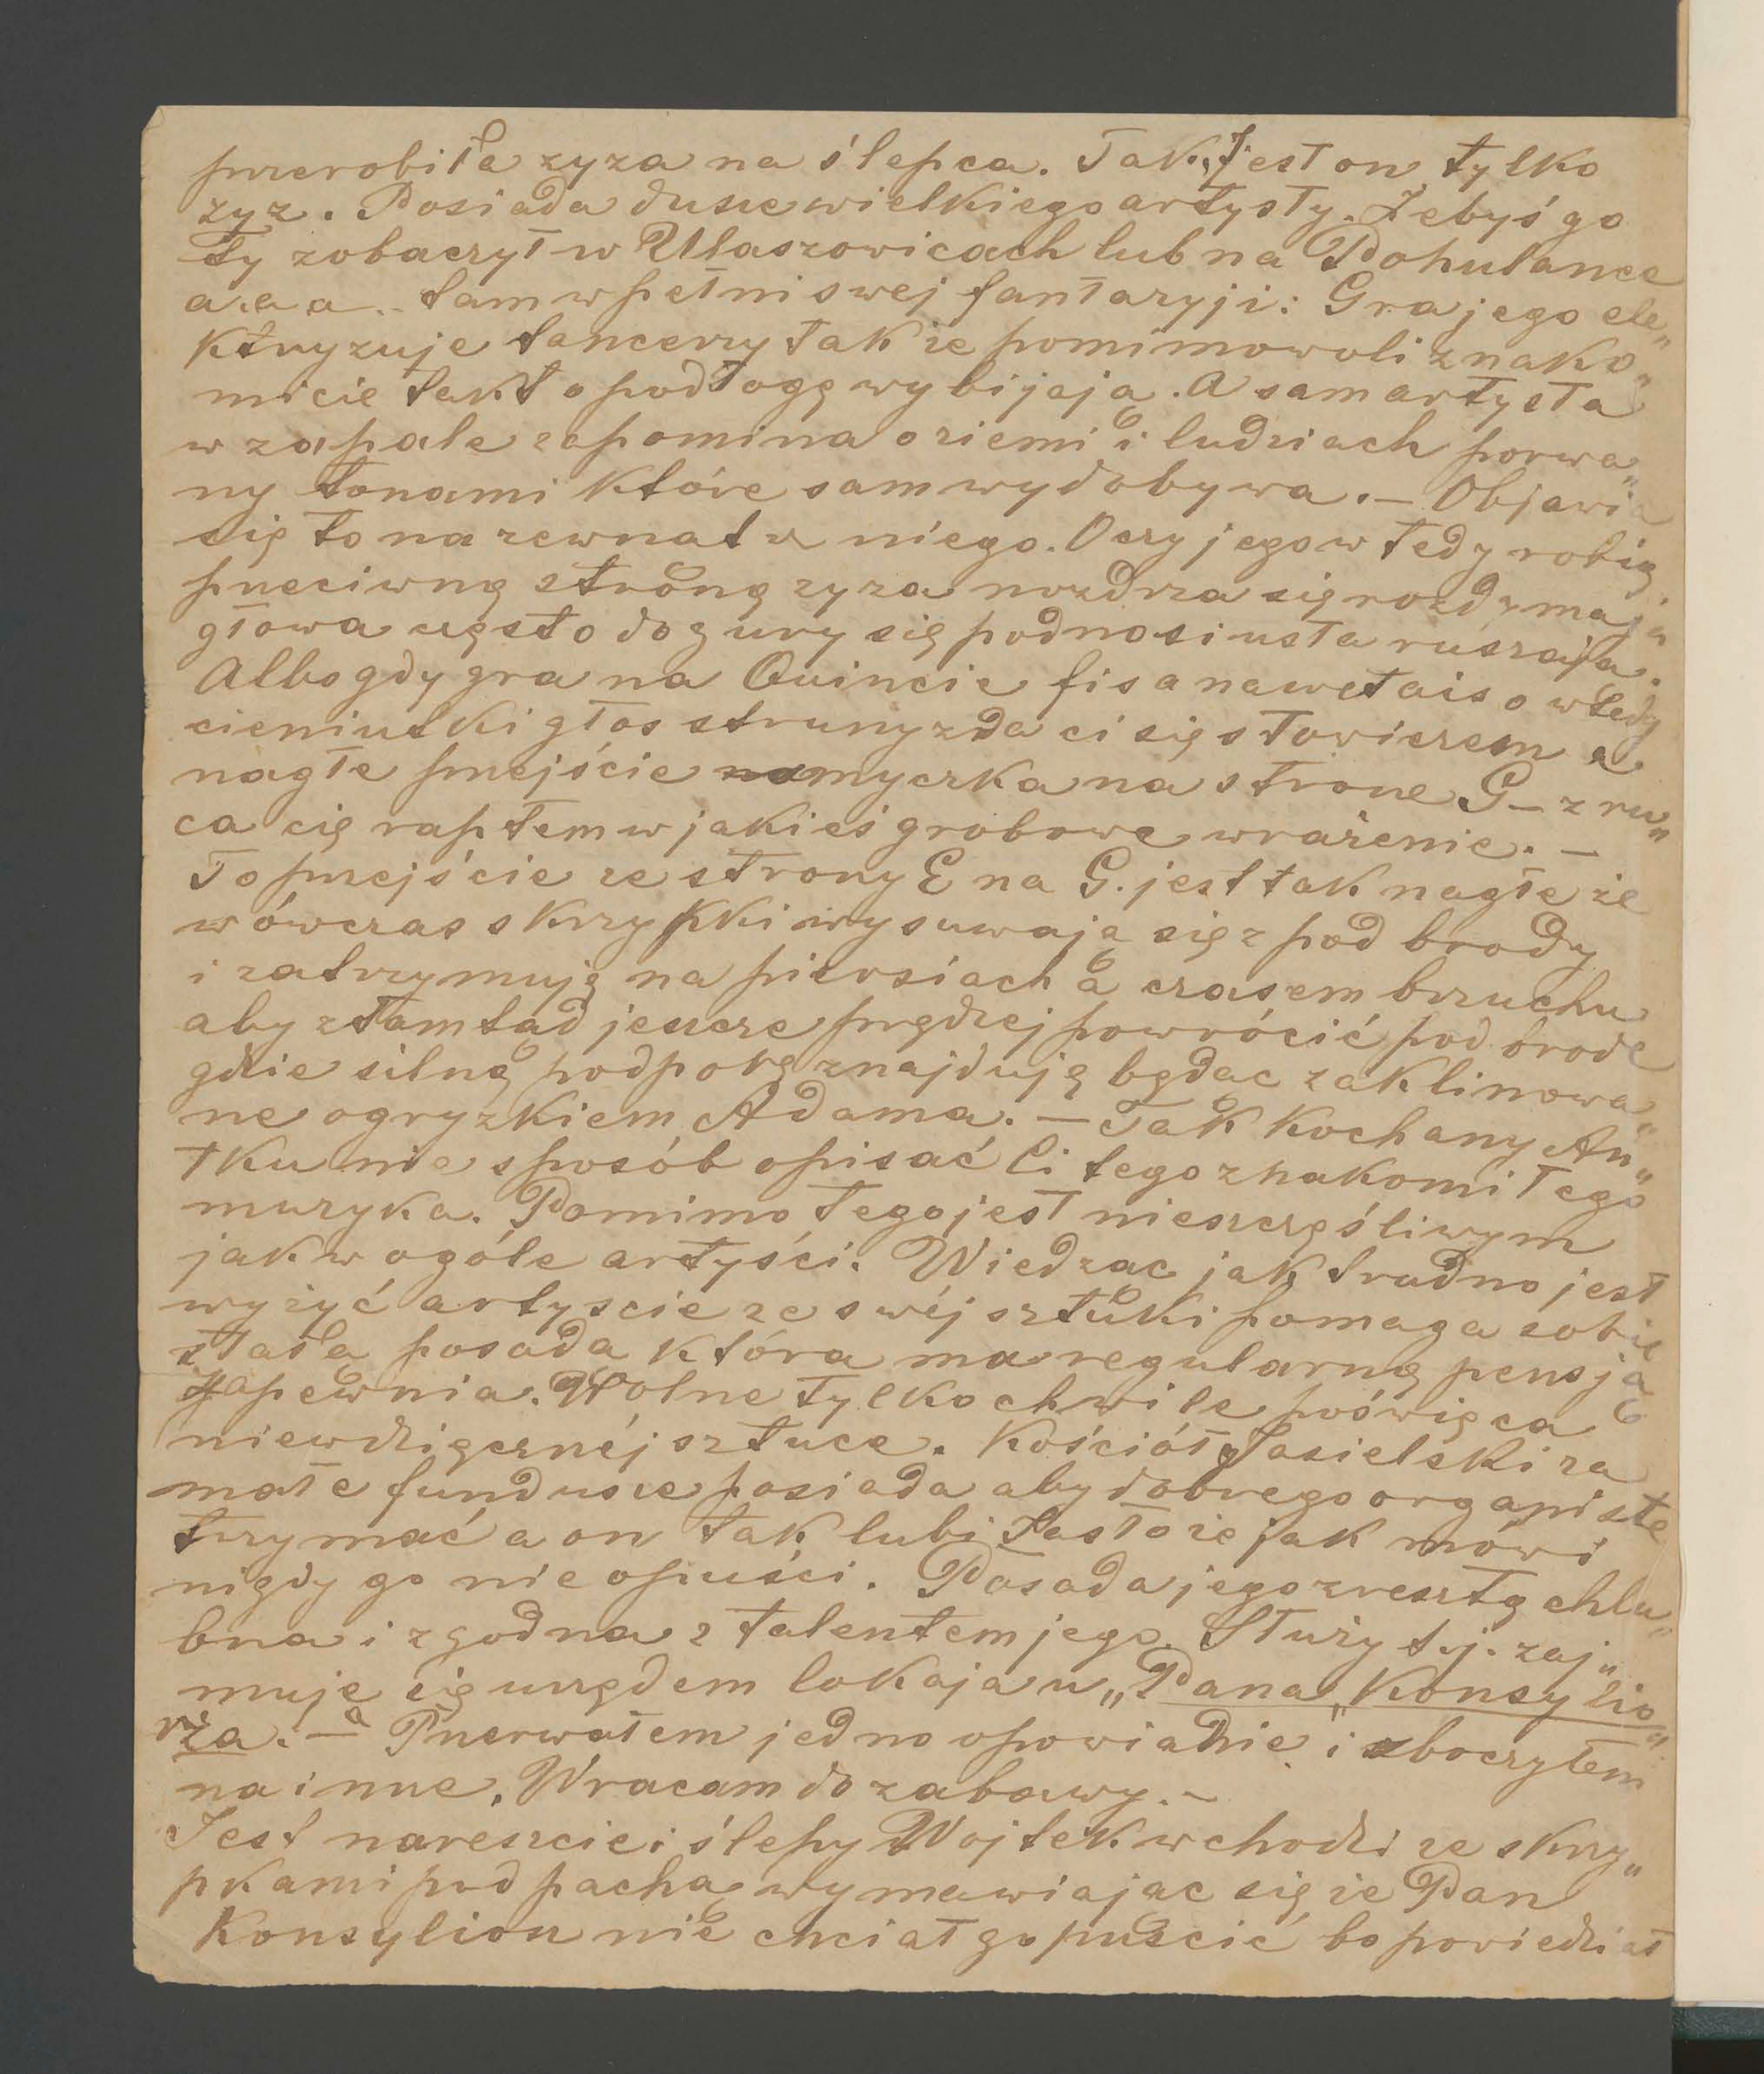 przerobiła zyza na ślepca. Tak, Jest on tylko
zyz. Posiada dusze wielkiego artysty. Żebyś go
Ty zobaczył w Ułaszowicach lub na Pohulance
a. a a .. tam w pełni swej fantazyji: Gra jego ele„
ktryzuje tancerzy tak że pomimowoli znako„
micie takt o podłogę wybijają. A sam artysta
w zapale zapomina o ziemi i ludziach porwa„
ny tonami które sam wydobywa. — Objawia
się to na zewnatrz niego. Oczy jego w tedy robią
przeciwną stroną zyza nozdrza się rozdymają
głowa często do gury się podnosi usta ruszają.
Albo gdy gra na Quincie fis a nawet ais o wtedy
cieniutki głos struny zda ci się słowiczem a
nagłe przejście myczka na strone G — zru„
ca cię raptem w jakieś grobowe wrażenie. —
To przejście ze strony E na G. jest tak nagłe że
wówczas skrzypki wysuwają się z pod brody
i zatrzymują na piersiach a czasem brzuchu
aby ztamtąd jeszcze prędzej powrócić pod brode
gdzie silną podporę znajdują będąc zaklinowa„
ne ogryzkiem Adama. — Tak kochany An„
tku nie sposób opisać Ci tego znakomitego
muzyka. Pomimo tego jest nieszczęśliwym
jak w ogóle artyści. Wiedząc jak trudno jest
wyżyć artyscie ze swéj sztuki pomaga sobie
stałą posada która ma regularną pensją
zapewnia. Wolne tylko chwile poświęca
niewdzięcznéj sztuce. Kościół Jasielski za
małe fundusze posiada aby dobrego organiste
trzymać a on tak lubi Jasło że jak mówi
nigdy go nie opuści. Posada jego zresztą chlu„
bna i zgodna z talentem jego. Służy t.j. zaj„
muje się urzędem lokaja u „Pana Konsylia„
rza. — Przerwałem jedno opowiadnie i zboczyłem
na inne. Wracam do zabawy. —
Jest nareszcie i ślepy Wojtek wchodzi ze skrzy„
pkami pod pachą wymawiając się że Pan
Konsyliou nie chciał go puścić bo powiedział